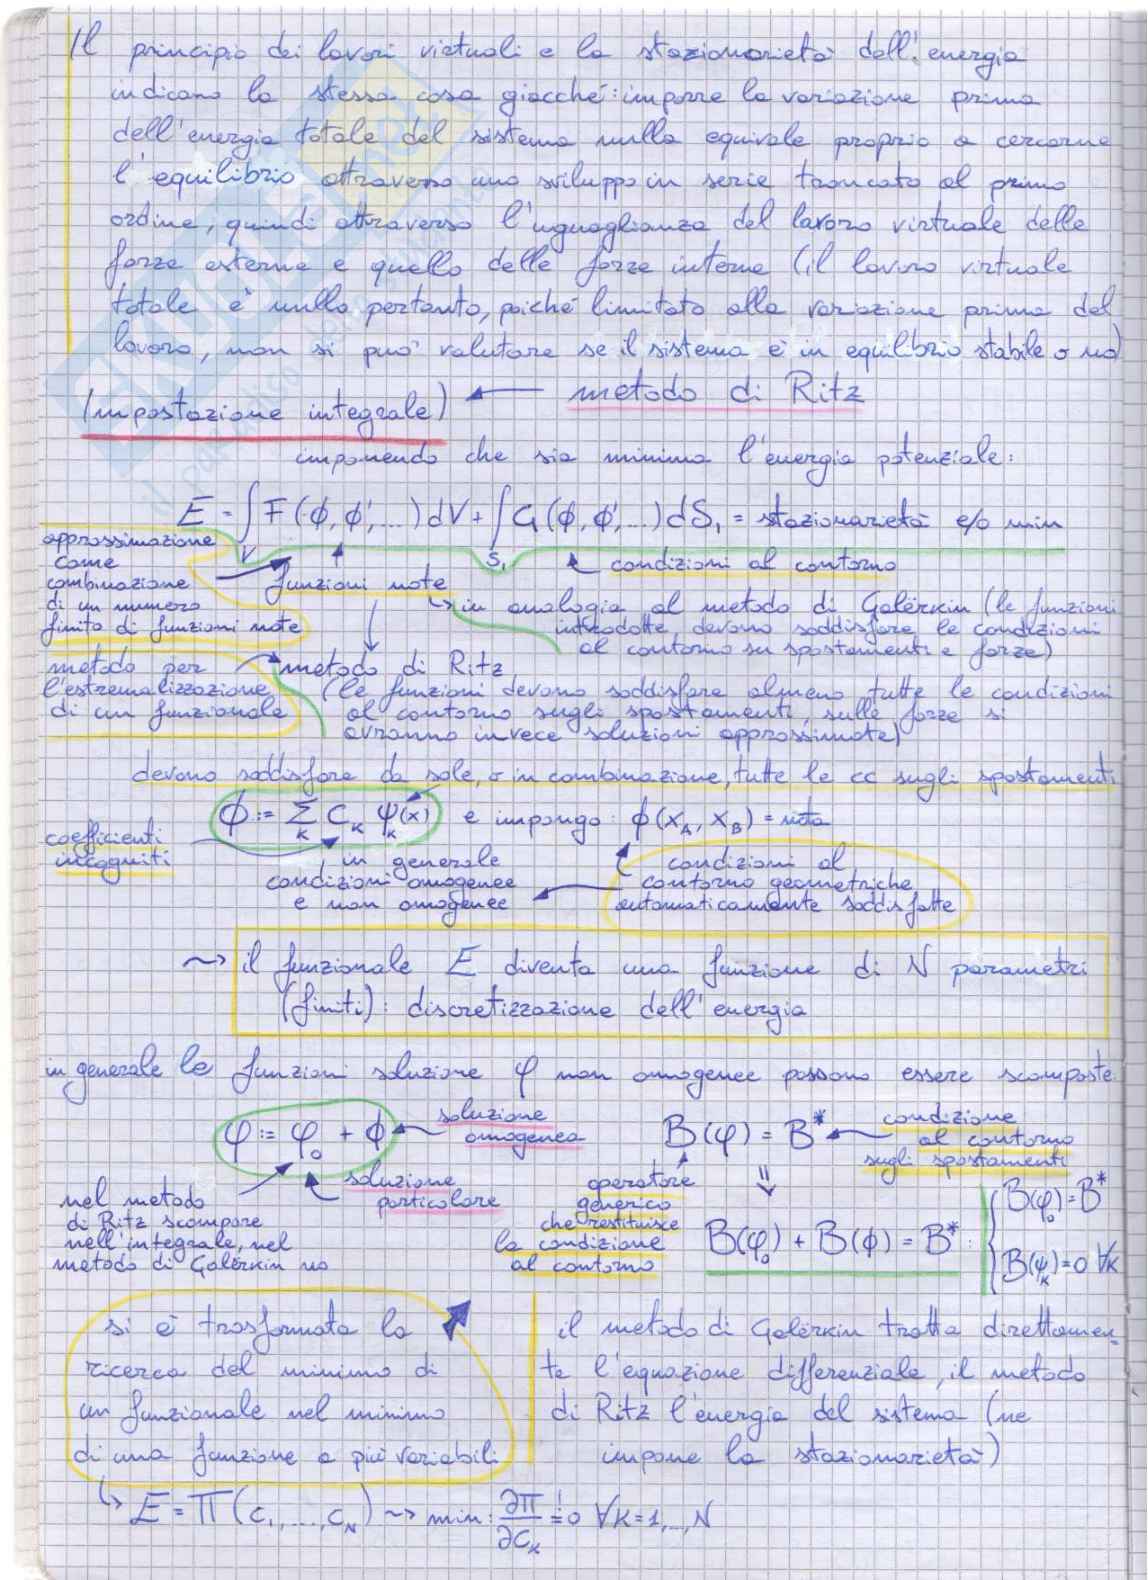 Il principio dei lavori virtuali e la stazionarietà dell'energia
indicano la stessa cosa giacché: imporre la variazione prima
dell'energia totale del sistema nulla equivale proprio a cercarne
l'equilibrio attraverso uno sviluppo in serie troncato al primo
ordine, quindi attraverso l'uguaglianza del lavoro virtuale delle
forze esterne e quello delle forze interne (il lavoro virtuale
totale è nullo pertanto, poiché limitato alla variazione prima del
lavoro, non si può valutare se il sistema è in equilibrio stabile o no)
(impostazione integrale) ← metodo di Ritz
imponendo che sia minima l'energia potenziale:
E = ∫_V F(ϕ, ϕ', ...) dV + ∫_S₁ G(ϕ, ϕ', ...) dS₁ = stazionarietà e/o min
approssimazione
come
combinazione
di un numero
finito di funzioni note
funzioni note
condizioni al contorno
↳ in analogia al metodo di Galërkin (le funzioni
introdotte devono soddisfare le condizioni
al contorno su spostamenti e forze)
metodo per
l'estremalizzazione
di un funzionale
metodo di Ritz
(le funzioni devono soddisfare almeno tutte le condizioni
al contorno sugli spostamenti, sulle forze si
avranno invece soluzioni approssimate)
devono soddisfare da sole, o in combinazione, tutte le cc sugli spostamenti
ϕ := Σ_K C_K ψ_K(x) e impongo: ϕ(x_A, x_B) = nota
coefficienti
incogniti
in generale
condizioni omogenee
e non omogenee
condizioni al
contorno geometriche
automaticamente soddisfatte
~> il funzionale E diventa una funzione di N parametri
(finiti): discretizzazione dell'energia
in generale le funzioni soluzione φ non omogenee possono essere scomposte
φ := φ₀ + ϕ
soluzione
omogenea
soluzione
particolare
nel metodo
di Ritz scompare
nell'integrale, nel
metodo di Galërkin no
B(φ) = B*
condizione
al contorno
sugli spostamenti
operatore
generico
che restituisce
la condizione
al contorno
⇓
B(φ₀) + B(ϕ) = B* :
{ B(φ₀) = B*
B(ψ_K) = 0 ∀K
si è trasformata la
ricerca del minimo di
un funzionale nel minimo
di una funzione a più variabili
il metodo di Galërkin tratta direttamen-
te l'equazione differenziale, il metodo
di Ritz l'energia del sistema (ne
impone la stazionarietà)
↳ E = Π(c₁, ..., c_N) ~> min: ∂Π/∂c_K != 0 ∀K = 1, .., N